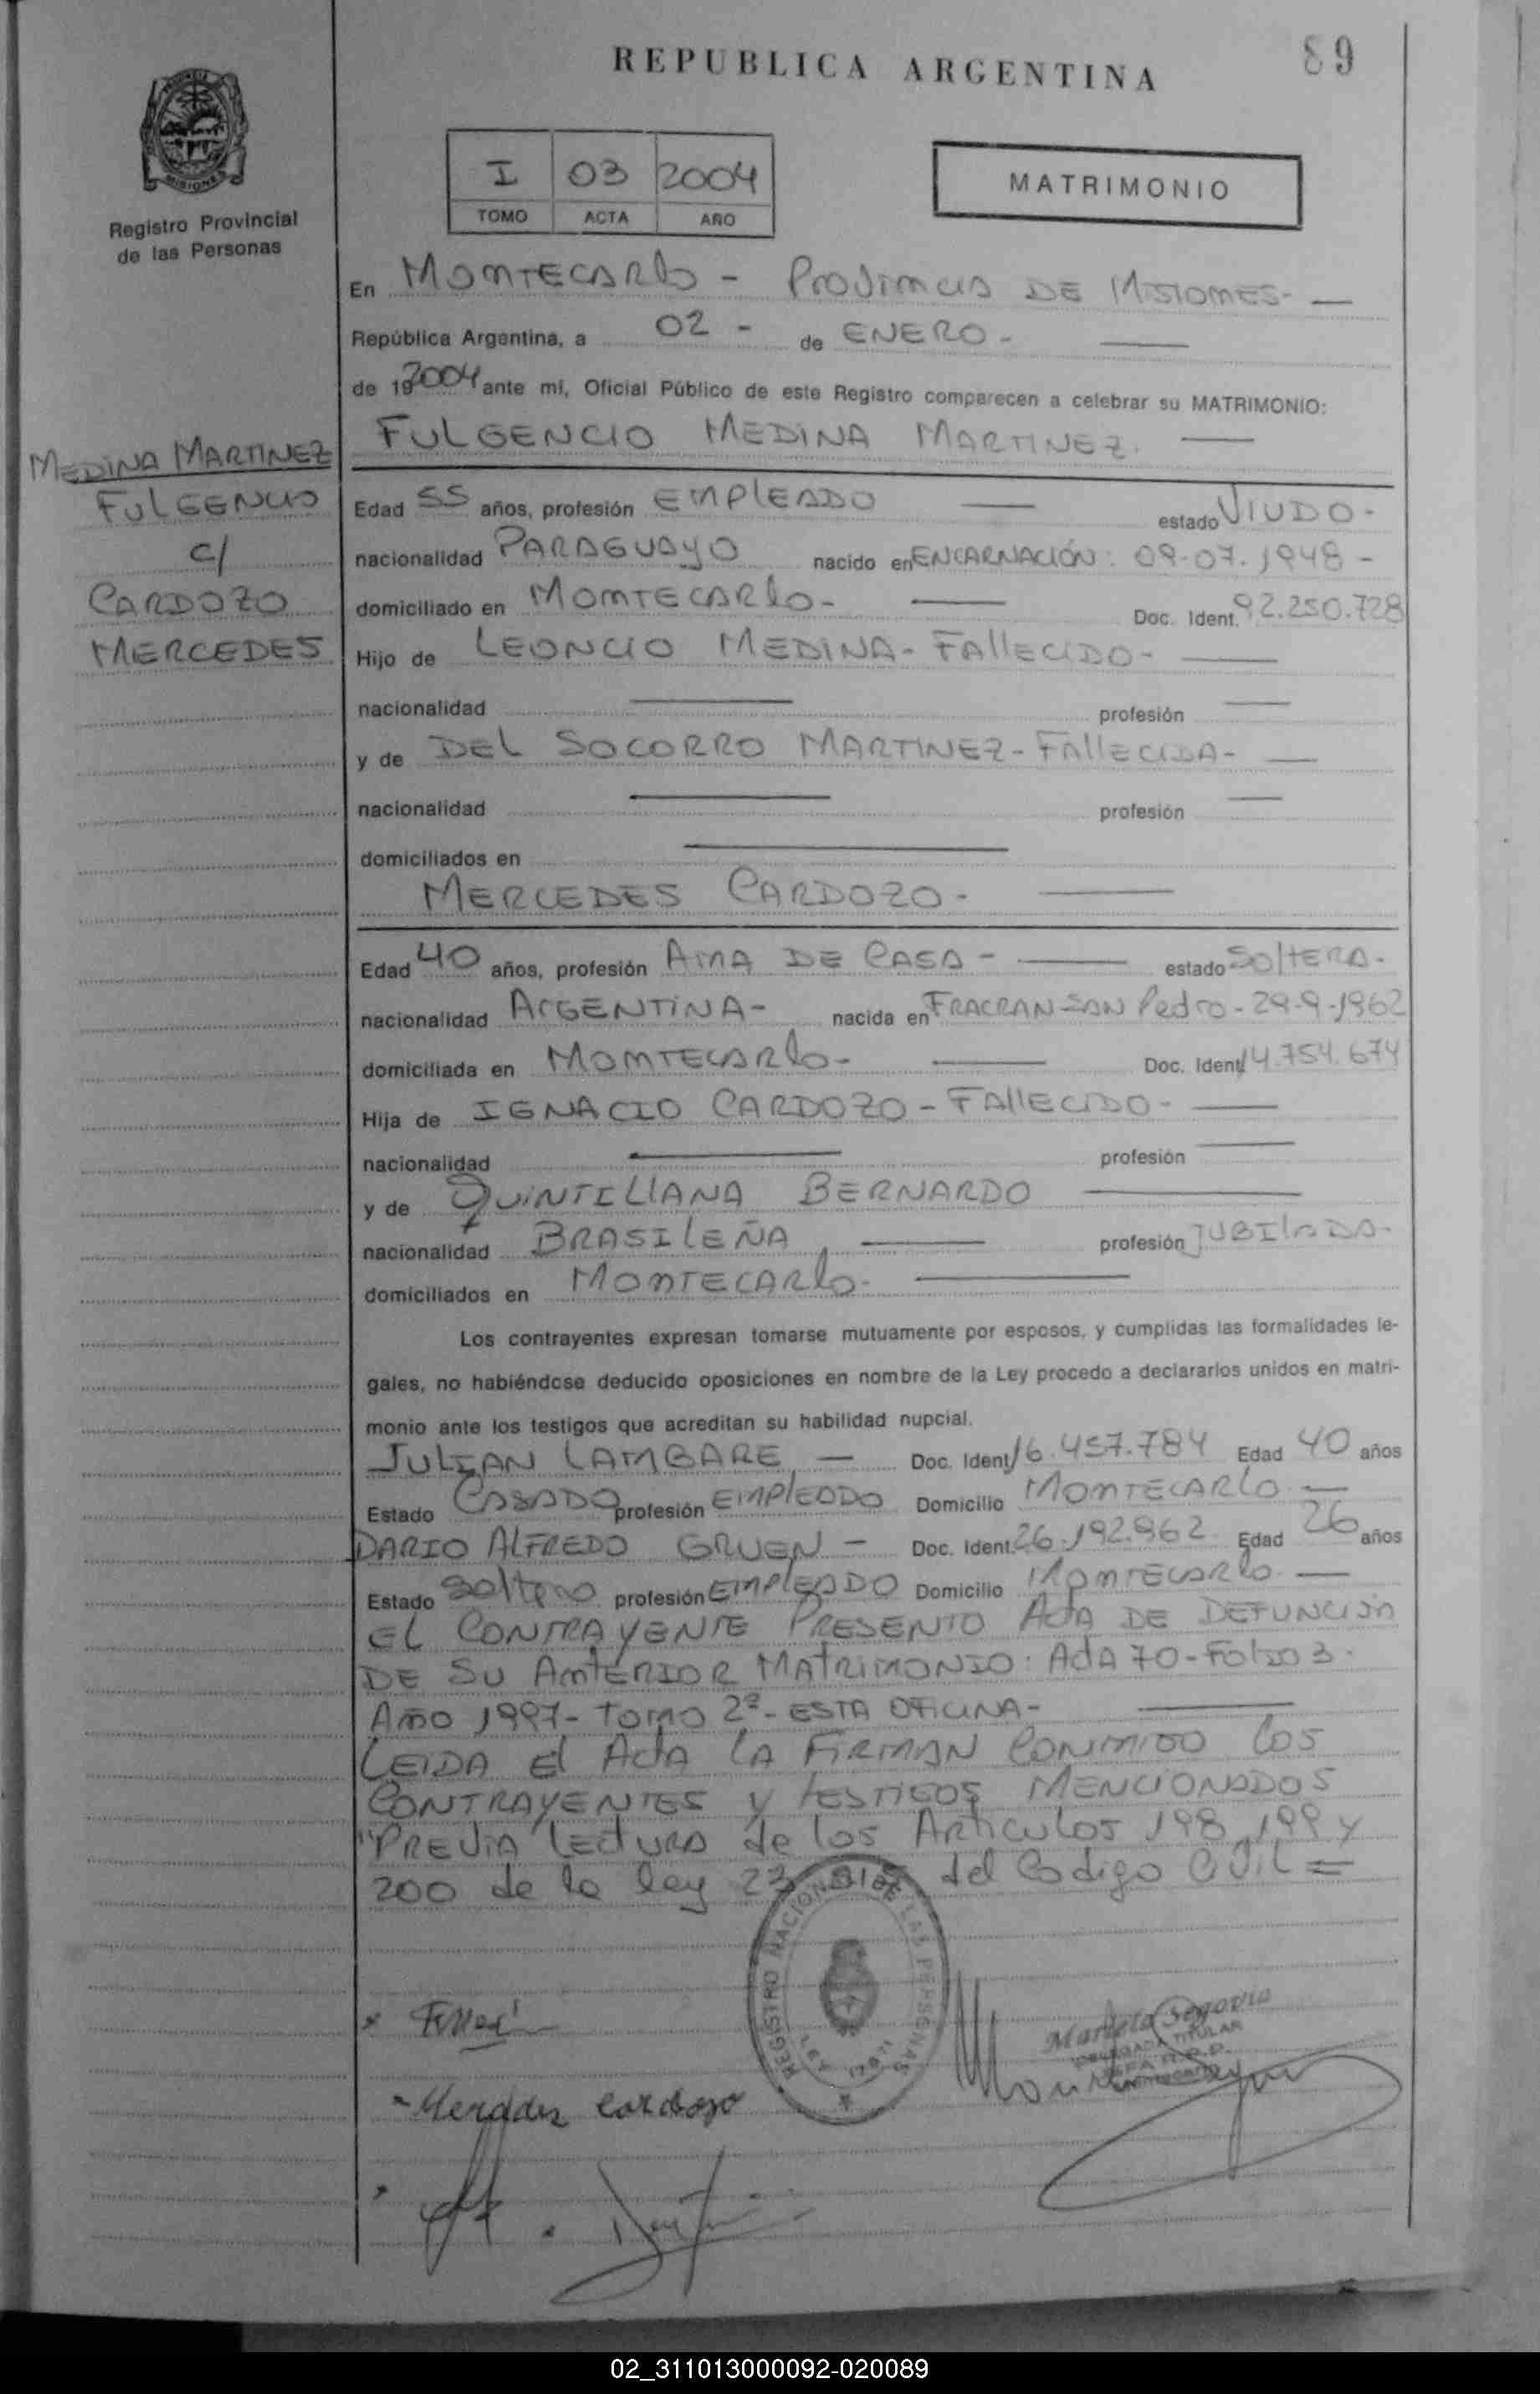 REPUBLICA ARGENTINA
89
MISIONES
Registro Provincial
de las Personas
I 03 2004
TOMO ACTA AÑO
MATRIMONIO
En MONTECARLO - PROVINCIA DE MISIONES-
República Argentina, a 02 - de ENERO -
de 192004 ante mí, Oficial Público de este Registro comparecen a celebrar su MATRIMONIO:
FULGENCIO MEDINA MARTINEZ.
MEDINA MARTINEZ
FULGENCIO
c/
CARDOZO
MERCEDES
Edad 55 años, profesión EMPLEADO estado VIUDO-
nacionalidad PARAGUAYO nacido en ENCARNACIÓN: 09-07.1948-
domiciliado en MONTECARLO- Doc. Ident. 92.250.728
Hijo de LEONCIO MEDINA- FALLECIDO-
nacionalidad profesión
y de DEL SOCORRO MARTINEZ- FALLECIDA-
nacionalidad profesión
domiciliados en
MERCEDES CARDOZO-
Edad 40 años, profesión AMA DE CASA- estado SOLTERA-
nacionalidad ARGENTINA- nacida en FRACRAN SAN Pedro- 29-9-1962
domiciliada en MONTECARLO- Doc. Ident. 14.754.674
Hija de IGNACIO CARDOZO- FALLECIDO-
nacionalidad profesión
y de QUINTILIANA BERNARDO
nacionalidad BRASILEÑA profesión JUBILADA-
domiciliados en MONTECARLO-
Los contrayentes expresan tomarse mutuamente por esposos, y cumplidas las formalidades le-
gales, no habiéndose deducido oposiciones en nombre de la Ley procedo a declararlos unidos en matri-
monio ante los testigos que acreditan su habilidad nupcial.
JULIAN LAMBARE - Doc. Ident. 16.457.784 Edad 40 años
Estado CASADO profesión EMPLEADO Domicilio MONTECARLO
DARIO ALFREDO GRUEN - Doc. Ident. 26.192.962 Edad 26 años
Estado Soltero profesión EMPLEADO Domicilio MONTECARLO
EL CONTRAYENTE PRESENTO ACTA DE DEFUNCION
DE SU ANTERIOR MATRIMONIO: ACTA 70-FOLIO 3-
AÑO 1997- TOMO 2º- ESTA OFICINA-
LEIDA El ACTA LA FIRMAN CONMIGO LOS
CONTRAYENTES Y TESTIGOS MENCIONADOS
"PREVIA LECTURA de los ARTICULOS 198, 199 y
200 de la ley 23 del Codigo CIVIL =
REGISTRO NACIONAL DE LAS PERSONAS
Marieta Segovia
DELEGADA TITULAR
Mercedes Cardozo
02_311013000092-020089